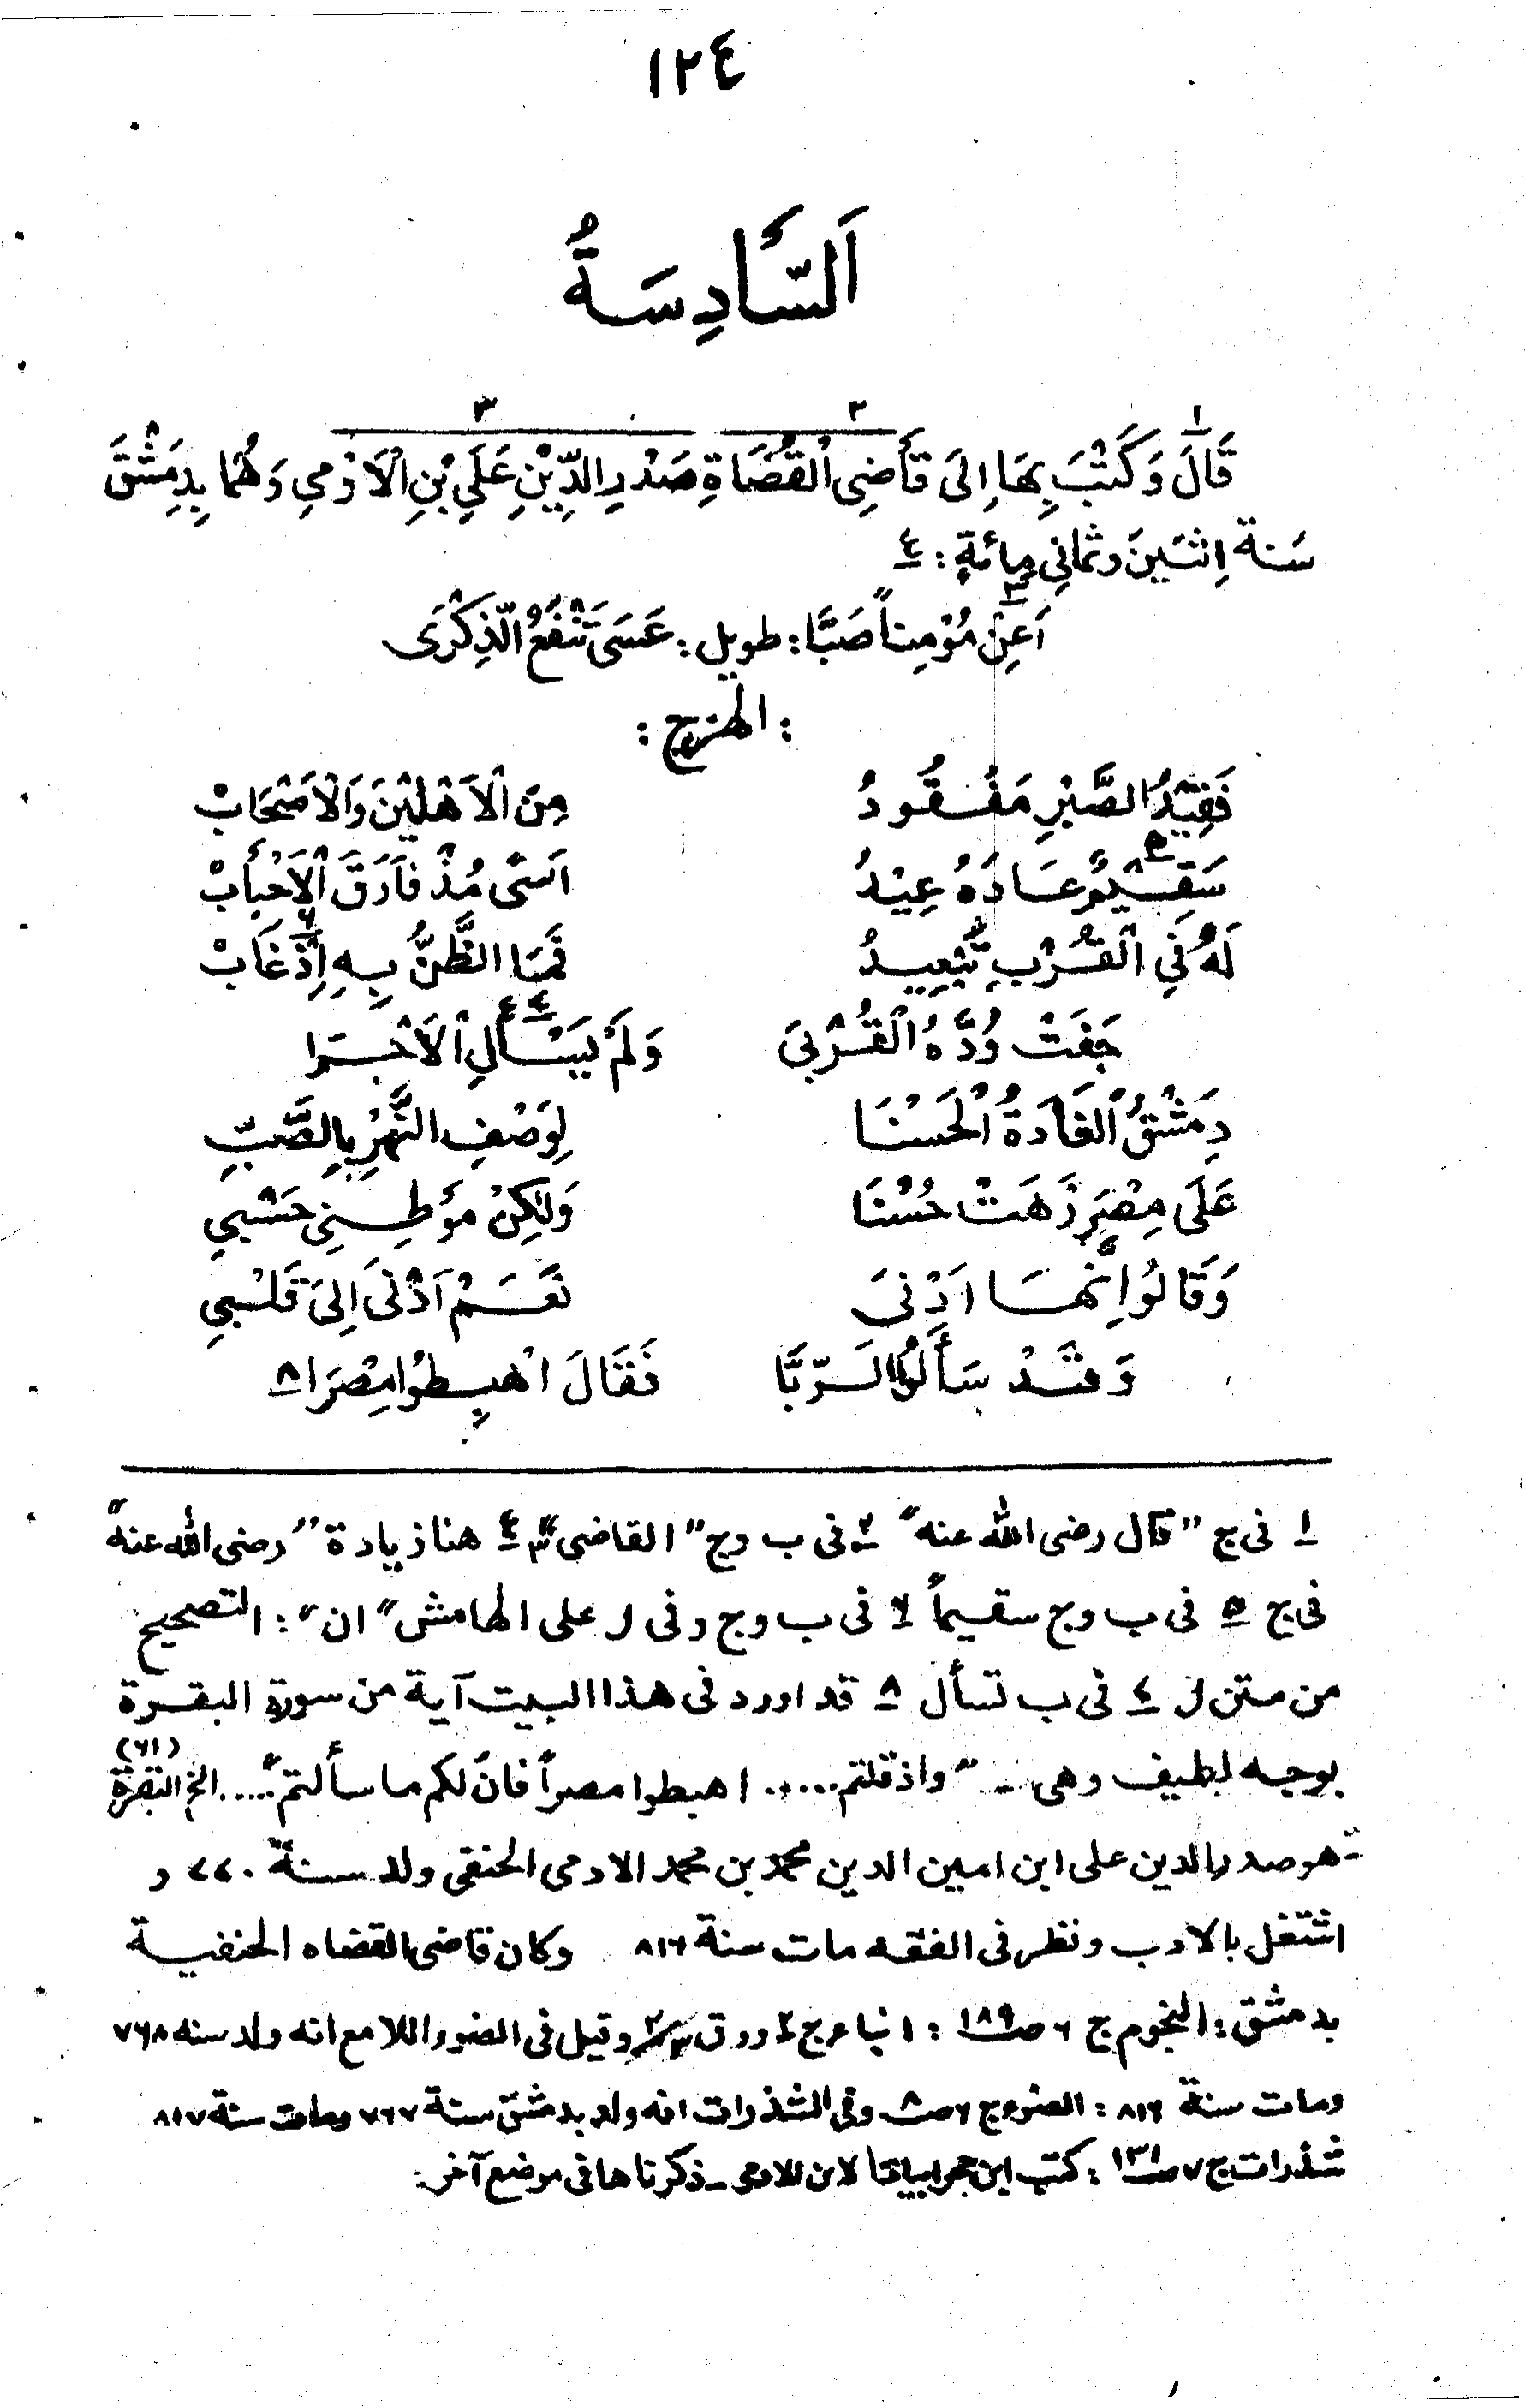 ١٢٤
اَلسَّادِسَةُ
١ ٢ ٣
قَالَ وَكَتَبَ بِهَا اِلىَ قَاضِى اْلقُضَاةِ صَدْرِ الدِّيْنِ عَلَىِ بْنِ اْلاَدْمِى وَهُمَا بِدِمَشْقَ
سَنة اِثنَينَ وثمانِى مِائةٍ : ٤
اَعِنْ مُؤْمِناً صَبًّا : طويل : عَسَى تَنْفَعُ الذِّكْرَى
: الهزج :
فَقِيْدُ الصَّبْرِ مَفْقُودُ مِنَ اْلاَهْلِيْنَ وَاْلاَصْحَابْ
سَقِيْمٌ عَادَهُ عِيْدُ ٥ اَسًى مُذْ فَارَقَ اْلاَحْبَابْ
لَهُ فِي اْلقُرْبِ تَبْعِيدُ فَمَا الظَّنُّ بِهِ اِذْ غَابْ ٦
جَفَتْ وُدَّهُ اْلقُرْبىَ وَلَمْ يَسْأَلِ اْلاَجْرَا
دِمَشْقُ اْلغَادَةُ اْلحَسْنَا لِوَصْفِ النَّهْرِ بِالصَّبِّ
عَلَى مِصْرٍ زَهَتْ حُسْنَا وَلكِنْ مَوْطِنِى حَسْبِي
وَقَالُوا اِنَّهَا اَدْنىَ نَعَمْ اَدْنىَ اِلىَ قَلْبِي
وَقَدْ سَأَلُوا الرَّبَّا فَقَالَ اهْبِطُوْا مِصْرَا ٨
١ فى ج "قال رضى الله عنه" ٢ فى ب وج "القاضى" ٤ هنا زيادة "رضى الله عنه"
فى ج ٥ فى ب وج سقيماً ٦ فى ب وج وفى ل على الهامش "ان" : التصحيح
من متن ل ٧ فى ب تسأل ٨ قد اورد فى هذا البيت آية من سورة البقرة
بوجه لطيف وهى - "واذ قلتم ..... اهبطوا مصراً فانّ لكم ما سألتم" ..... الخ البقرة (٦١)
هو صدر الدين على ابن امين الدين محمد بن محمد الادمى الحنفى ولد سنة ٧٧٠ و
اشتغل بالادب ونظر فى الفقه مات سنة ٨١٦ وكان قاضى القضاه الحنفية
بدمشق : النجوم ج ٦ ص ١٨٩ : انباء ج ٢ ورق وقيل فى الضوء اللامع انه ولد سنه ٧٦٨
ومات سنة ٨١٦ : الضوء ج ٦ ص ٨ وفى الشذرات انه ولد بدمشق سنة ٧٦٧ ومات سنة ٨١٧
شذرات ج ٧ ص ١٢١ : كتب ابن حجر ابياتا لابن الادمى - ذكرناها فى موضع آخر :